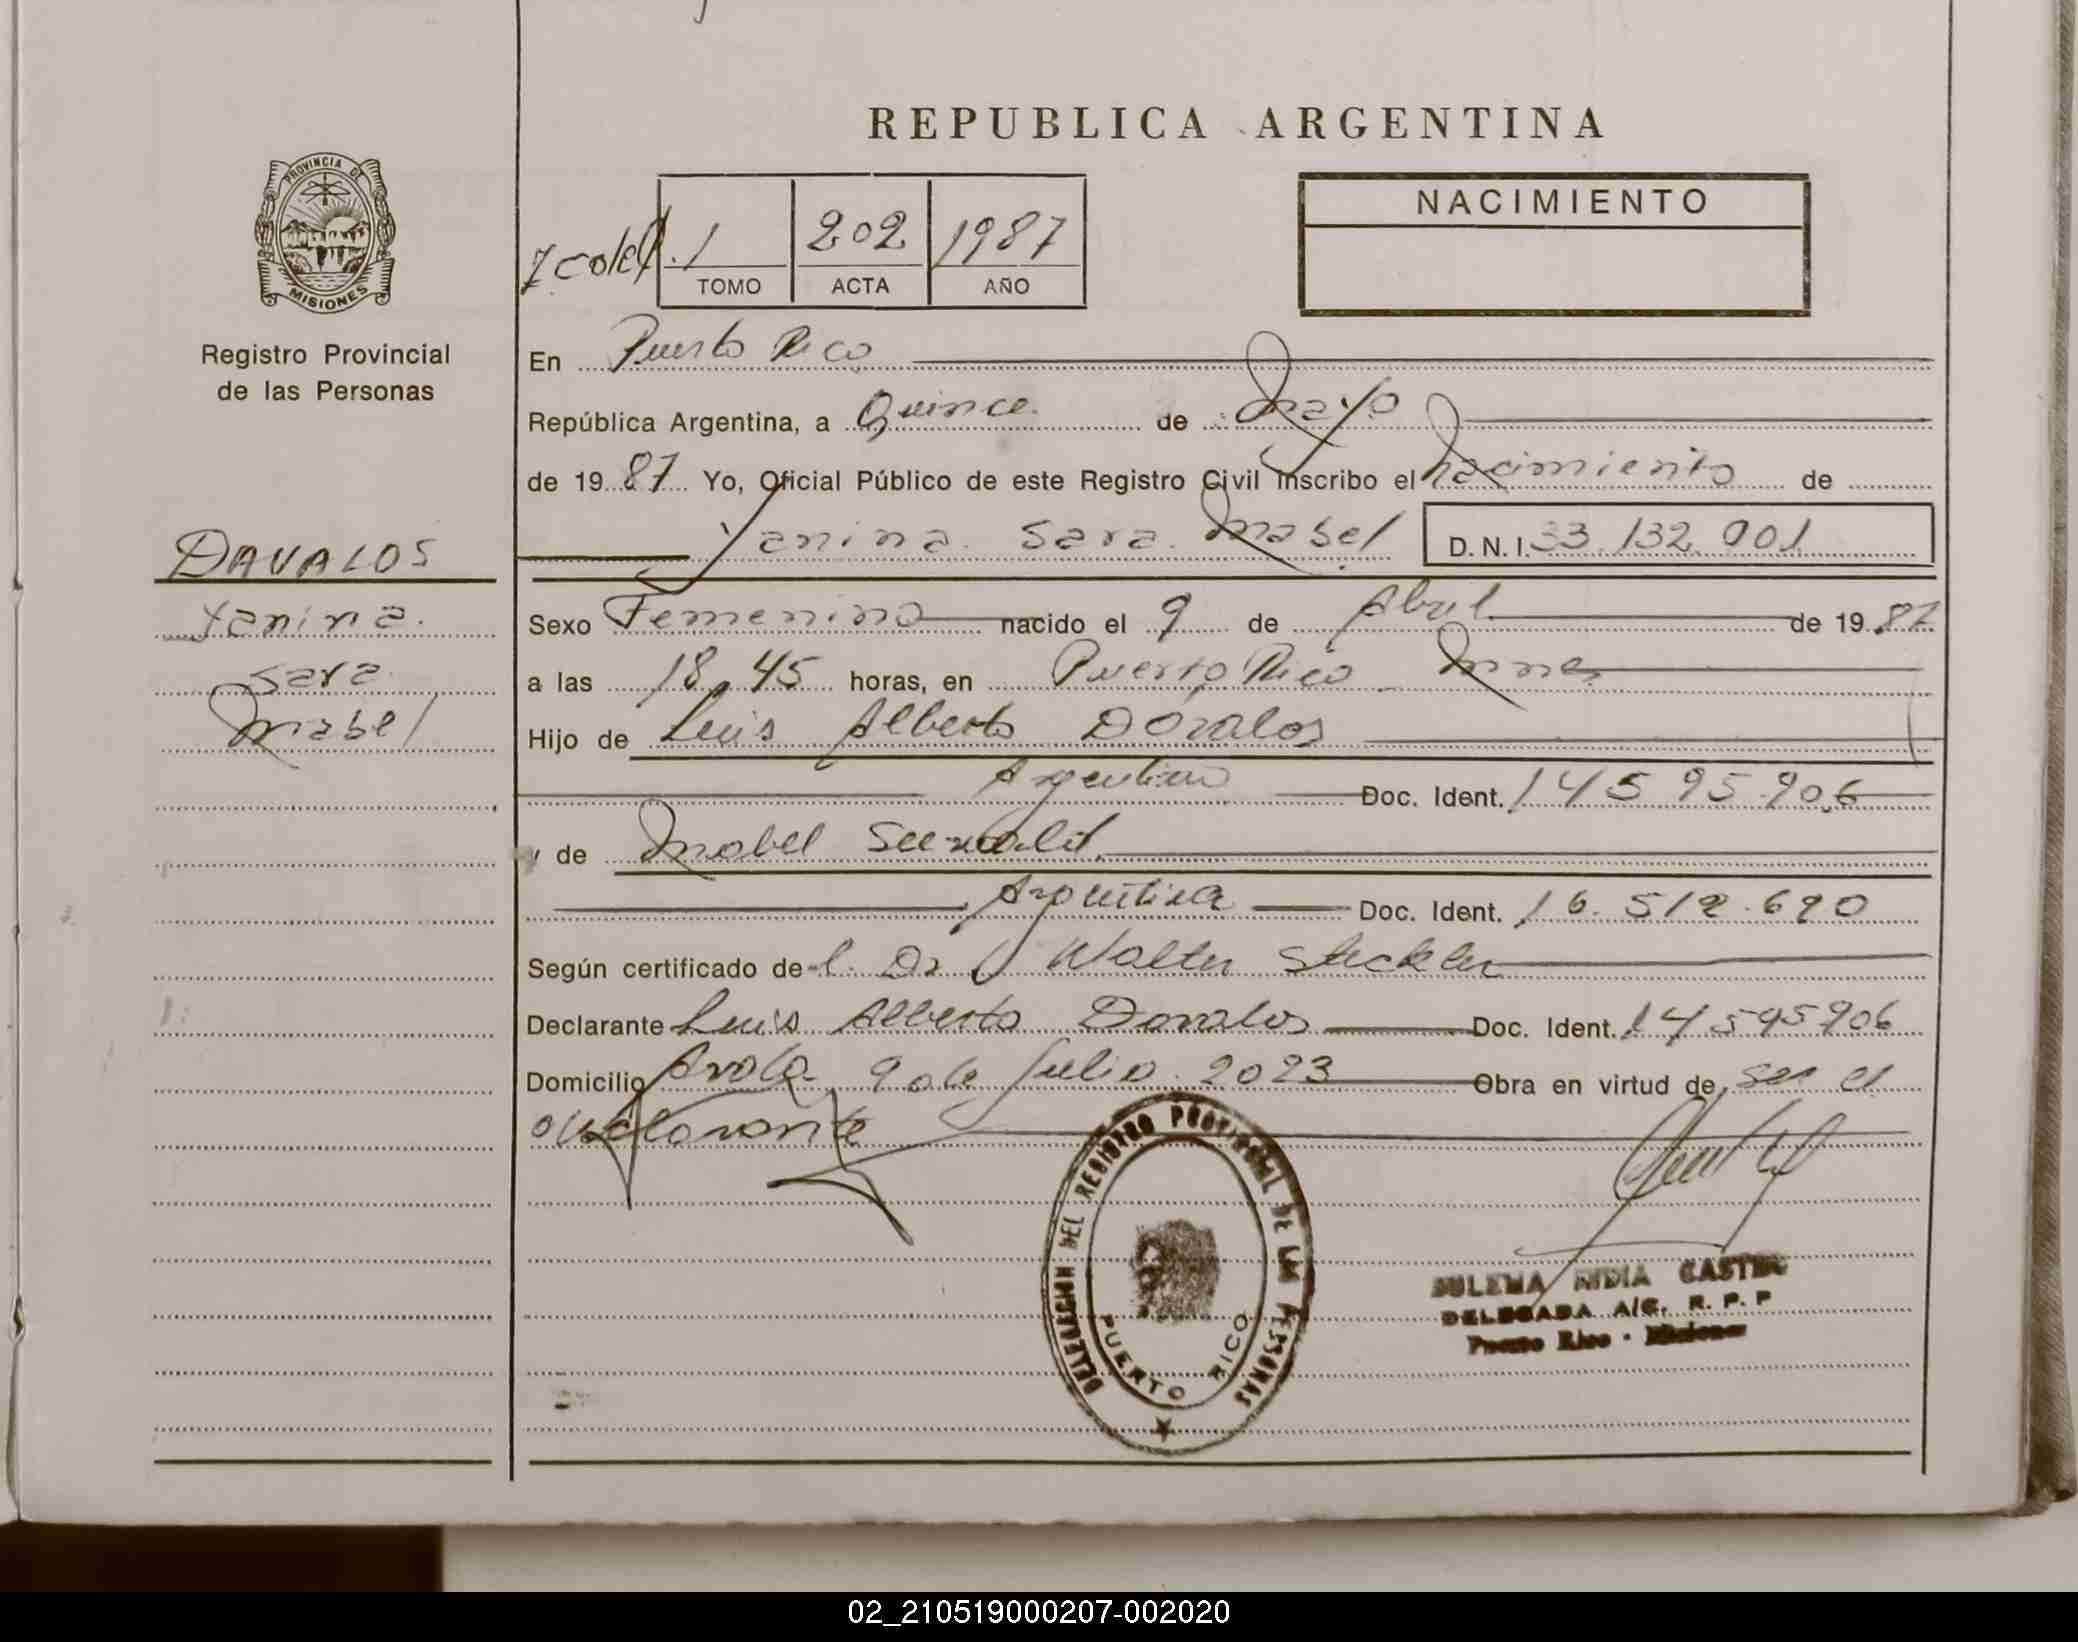 REPUBLICA ARGENTINA
PROVINCIA DE
MISIONES
Registro Provincial
de las Personas
1 202 1987
TOMO ACTA AÑO
NACIMIENTO
En Puerto Rico
República Argentina, a Quince de Mayo
de 1987 Yo, Oficial Público de este Registro Civil inscribo el nacimiento de
Yanina Sara Mabel D.N.I. 33.132.001
DAVALOS
Yanina
Sara
Mabel
Sexo Femenino nacido el 9 de Abril de 1987
a las 18,45 horas, en Puerto Rico Mnes
Hijo de Luis Alberto Dávalos
Argentino Doc. Ident. 14595.906
y de Mabel
Argentina Doc. Ident. 16.512.690
Según certificado de l. Dr Walter Steckler
Declarante Luis Alberto Davalos Doc. Ident. 14595906
Domicilio Avda 9 de Julio 2023 Obra en virtud de ser el
declarante
DELEGACION DEL REGISTRO PROVINCIAL DE LAS PERSONAS
PUERTO RICO
DELEGADA A/C. R. P. P
Puerto Rico - Misiones
02_210519000207-002020